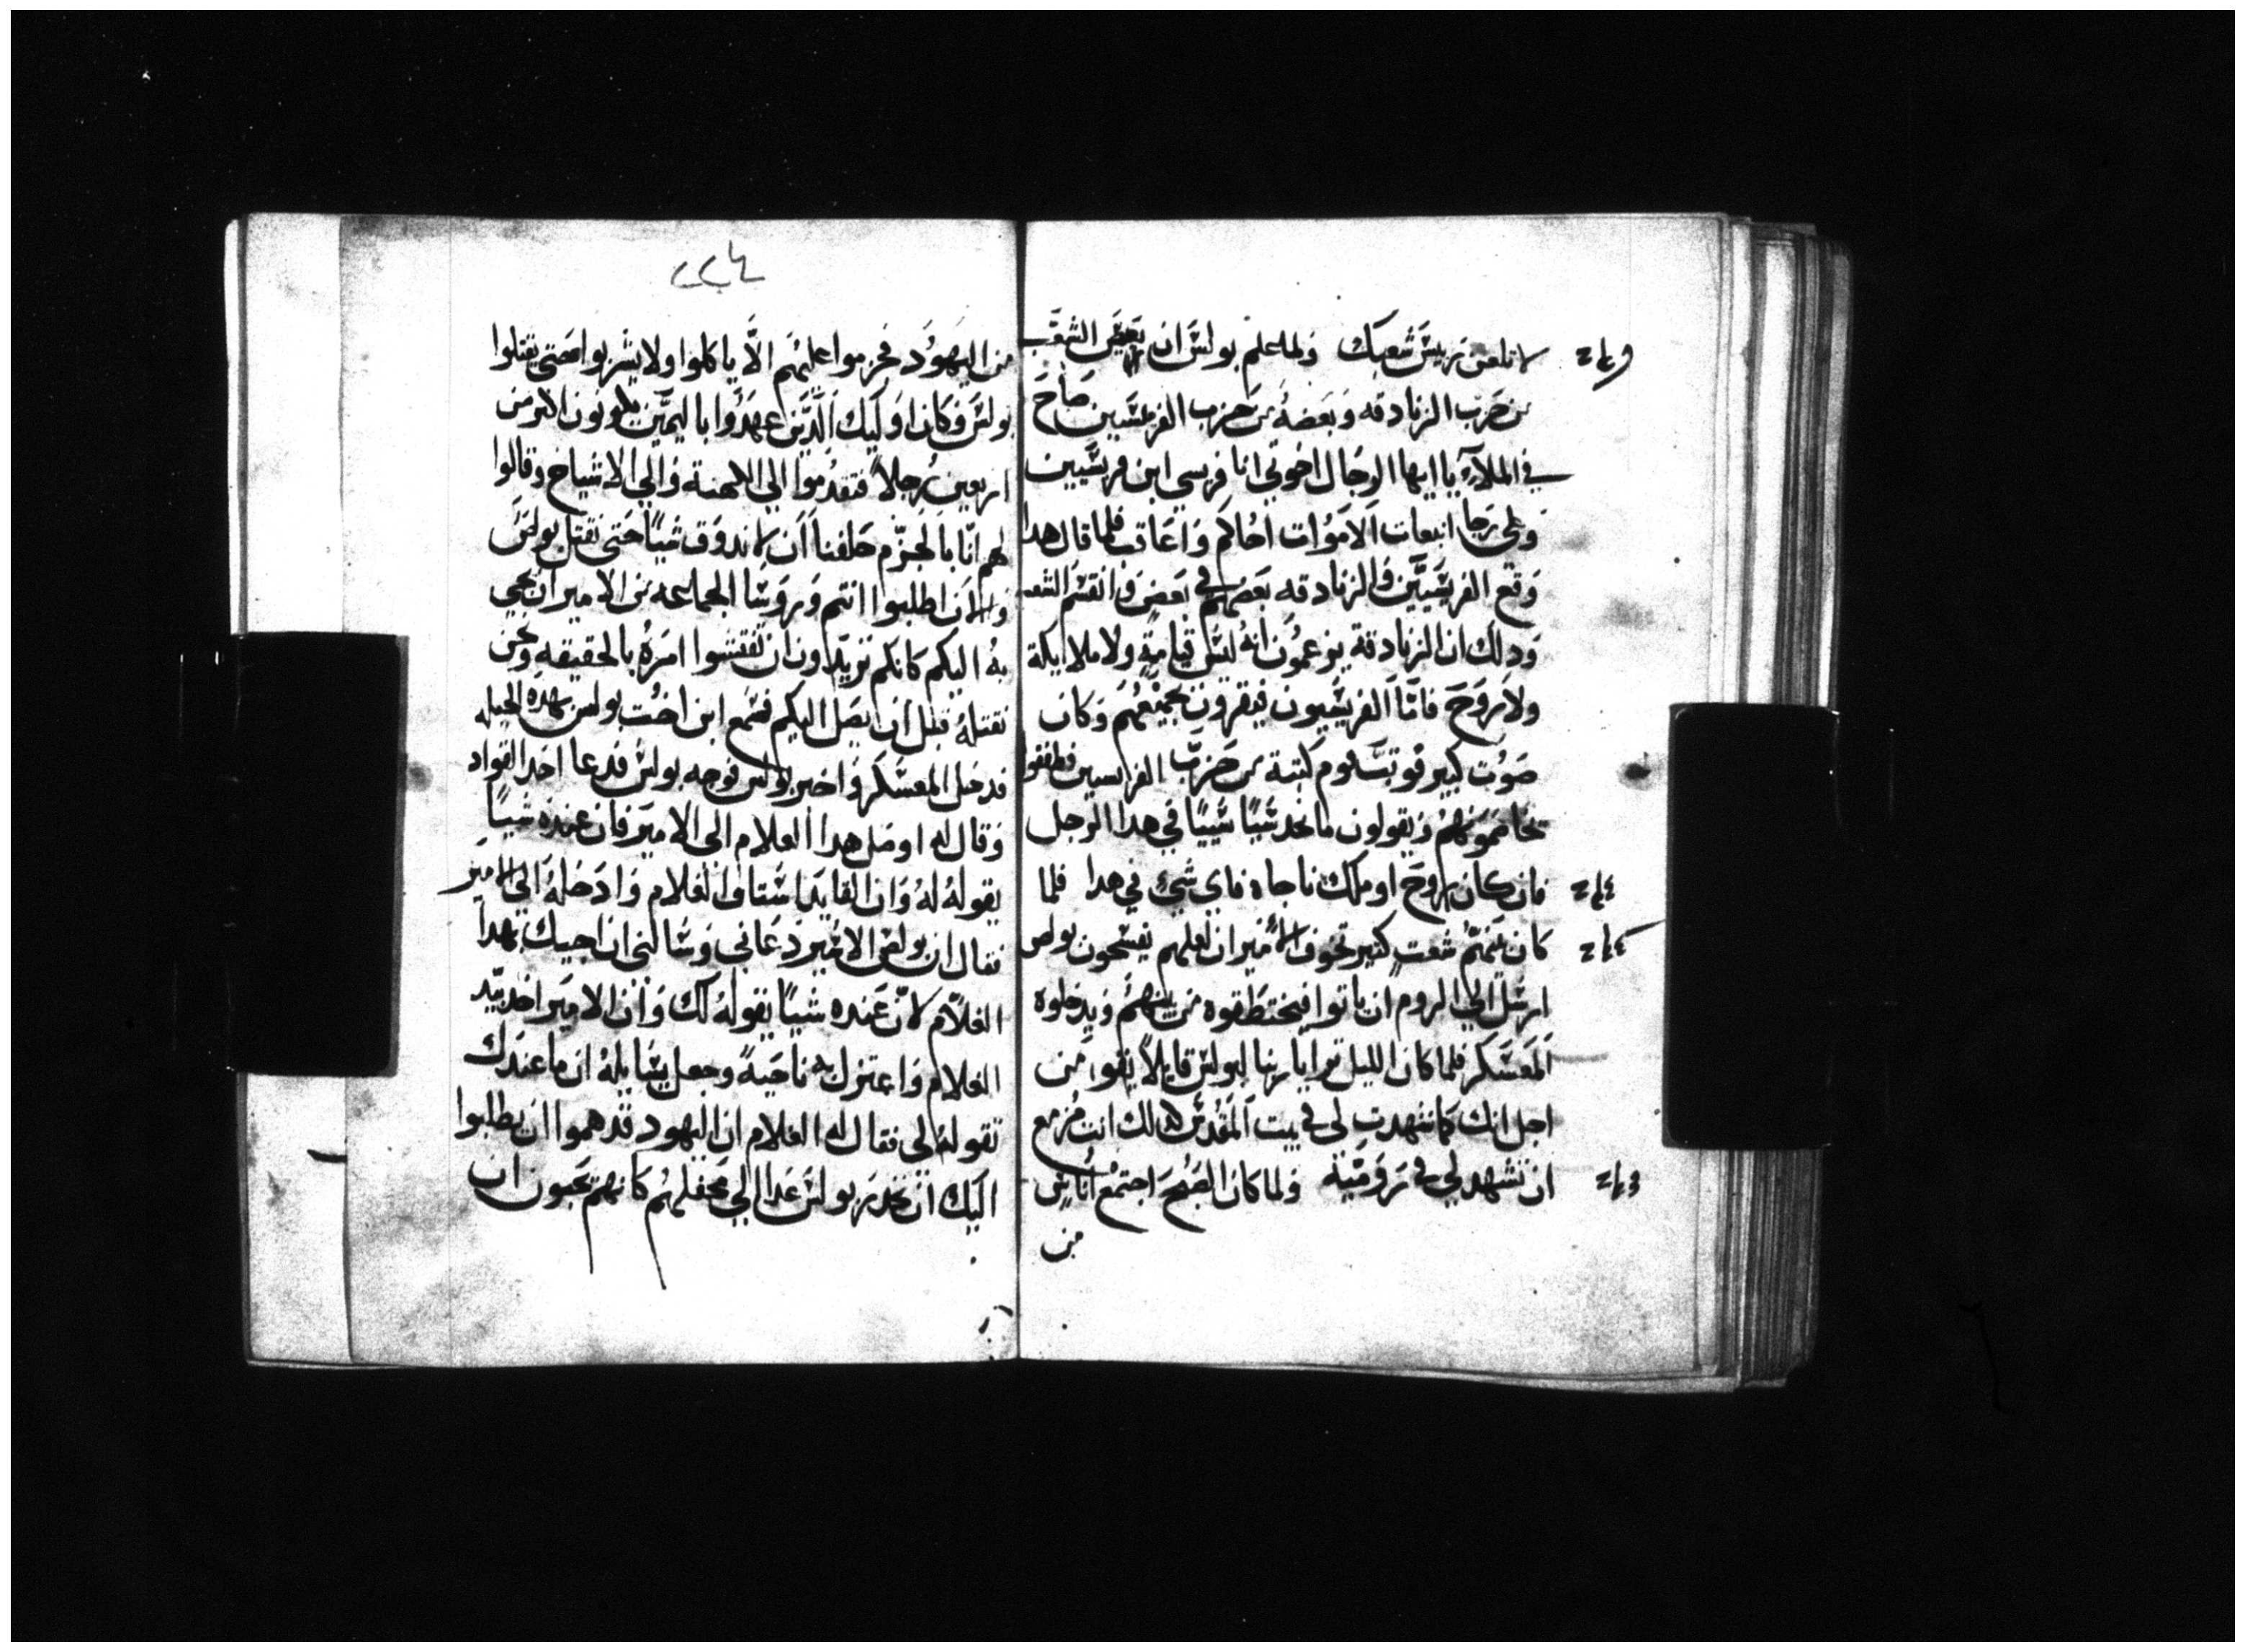 لا تلعن ريس شعبك ولما علم بولس ان بعض الشعب
من حزب الزنادقه وبعضه من حزب الفريسيين صاح
في الملاء يا ايها الرجال اخوتي انا فريسي ابن فريسيين
وعلي رجا انبعات الاموات احاكم واعاقب فلما قال هدا
وقع الفريسيين والزنادقه بعضهم في بعض وانقسم الشعب
ودلك ان الزنادقة يزعمون انه ليس قيامة ولا ملايكة
ولا روح فاما الفريسيون فيقرون بجميعهم وكان
صوت كبير فوتب قوم كتبة من حزب الفريسيين فطفقوا
يخاصمونهم ويقولون ما نجد شيا شييا في هدا الرجل
فان كان روح او ملك ناجاه فاي شي في هدا فلما
كان بينهم شعب كتير تخوف الامير ان لعلهم يفسخون بولس
ارسل الي الروم ان ياتوا فيختطفوه من بينهم ويدخلوه
المعسكر فلما كان الليل ترايا ربنا لبولس قايلا تقوا من
اجل انك كما شهدت لي في بيت المقدس كدالك انت مزمع
ان تشهد لي في رومية ولما كان الصبح اجتمع اناس
من
٢٢٤
من اليهود فحرموا عليهم الا ياكلوا ولا يشربوا حتي يقتلوا
بولس وكان اوليك الدين عهدوا باليمين يكونون اكتر من
اربعين رجلا فتقدموا الي الكهنة والي الاشياخ وقالوا
لهم انا بالجزم حلفنا ان لا ندوق شيا حتي نقتل بولس
والان اطلبوا انتم وروسا الجماعه من الامير ان يجي
به اليكم كانكم تريدون ان تفتشوا امره بالحقيقه ونحن
نقتله قبل ان يصل اليكم فسمع ابن اخت بولس بهده الحيله
فدخل المعسكر واخبر بولس فوجه بولس فدعا احد القواد
وقال له اوصل هدا الغلام الي الامير فان عنده شيا
يقوله له وان القايد استاق الغلام وادخله الي الامير
فقال ان بولس الاسير دعاني وسالني ان اجيك بهدا
الغلام لان عنده شيا يقوله لك وان الامير اخد بيد
الغلام واعتزل به ناحية وجعل يسايله ان ما عندك
تقوله لي فقال له الغلام ان اليهود قد هموا ان يطلبوا
اليك ان تحدر بولس غدا الي محفلهم كانهم يحبون ان